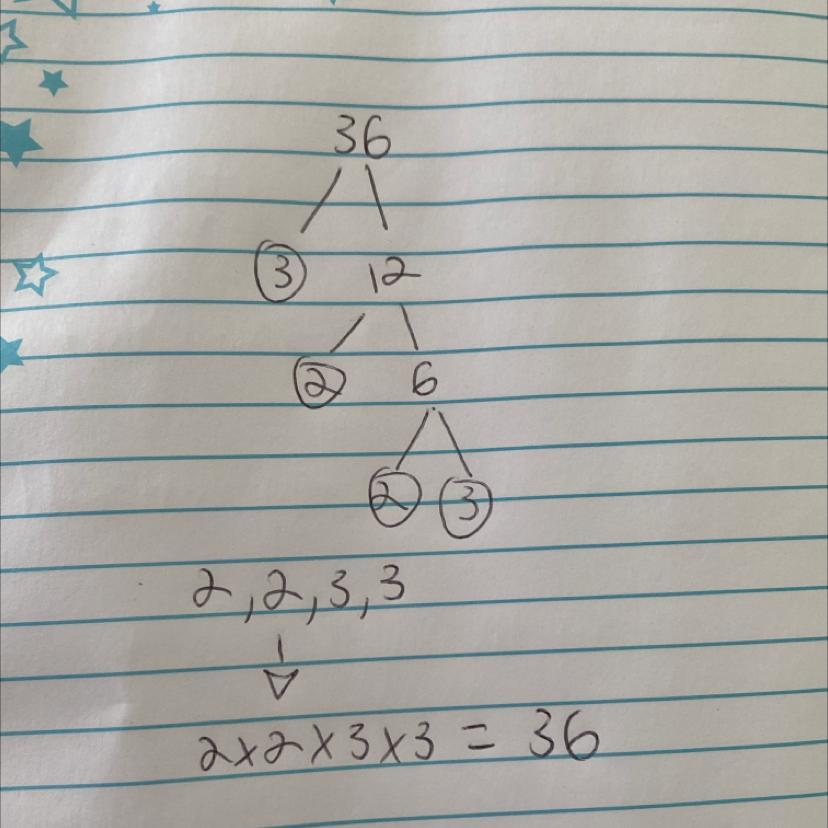 36
3 12
2 6
2 3
2,2,3,3
2x2x3x3 = 36